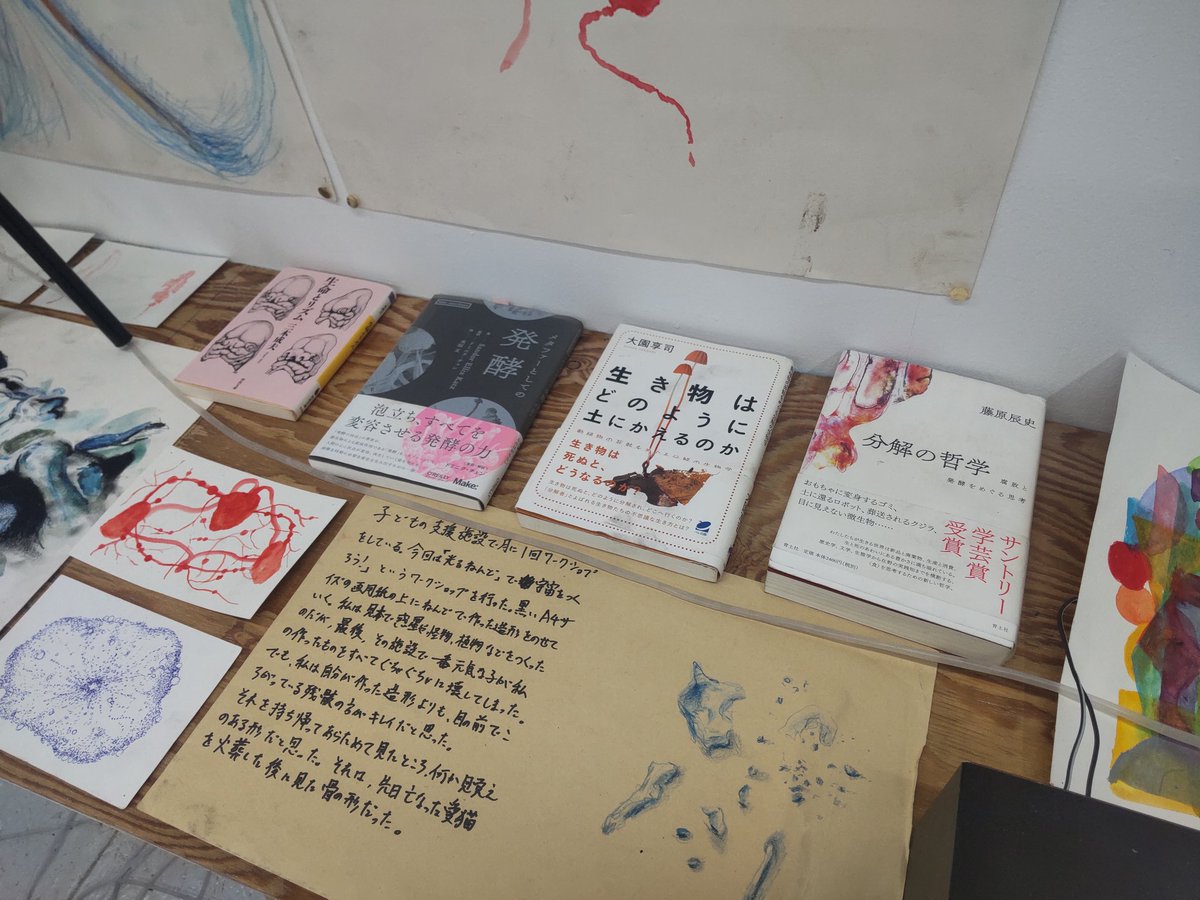 生命とリズム 三木成夫
メタファーとしての
発酵
Sandor Ellix Katz
泡立ち、すべてを
変容させる発酵の力
Make:
大園享司
生き物は
どのように
土にかえるのか
生き物は
死ぬと、
どうなるのか?
藤原辰史
分解の哲学
腐敗と
発酵をめぐる思考
おもちゃに変身するゴミ、
土に還るロボット、葬送されるクジラ、
目に見えない微生物……
サントリー
学芸賞
受賞
青土社
子どもの支援施設で月に1回ワークショップ
をしている。今回は「来るねんど」で宇宙をつく
ろう!」というワークショップを行った。黒いA4サ
イズの画用紙の上にねんどで作った造形をのせて
いく。私は見本で惑星や怪物、植物などをつくった
のだが、最後、その施設で一番元気な子が私
の作ったものをすべてぐちゃぐちゃに壊してしまった。
でも、私は自分が作った造形よりも、目の前でこ
ろがっている残骸の方がキレイだと思った。
それを持ち帰ってあらためて見たところ、何か見覚え
のある形だと思った。それは、先日亡なった愛猫
を火葬した後に見た骨の形だった。